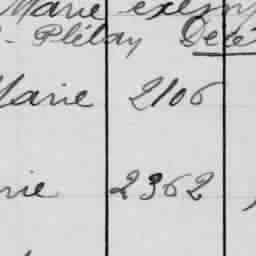 Marie exem
- Plébay Décé
Marie 2106
rie 2362